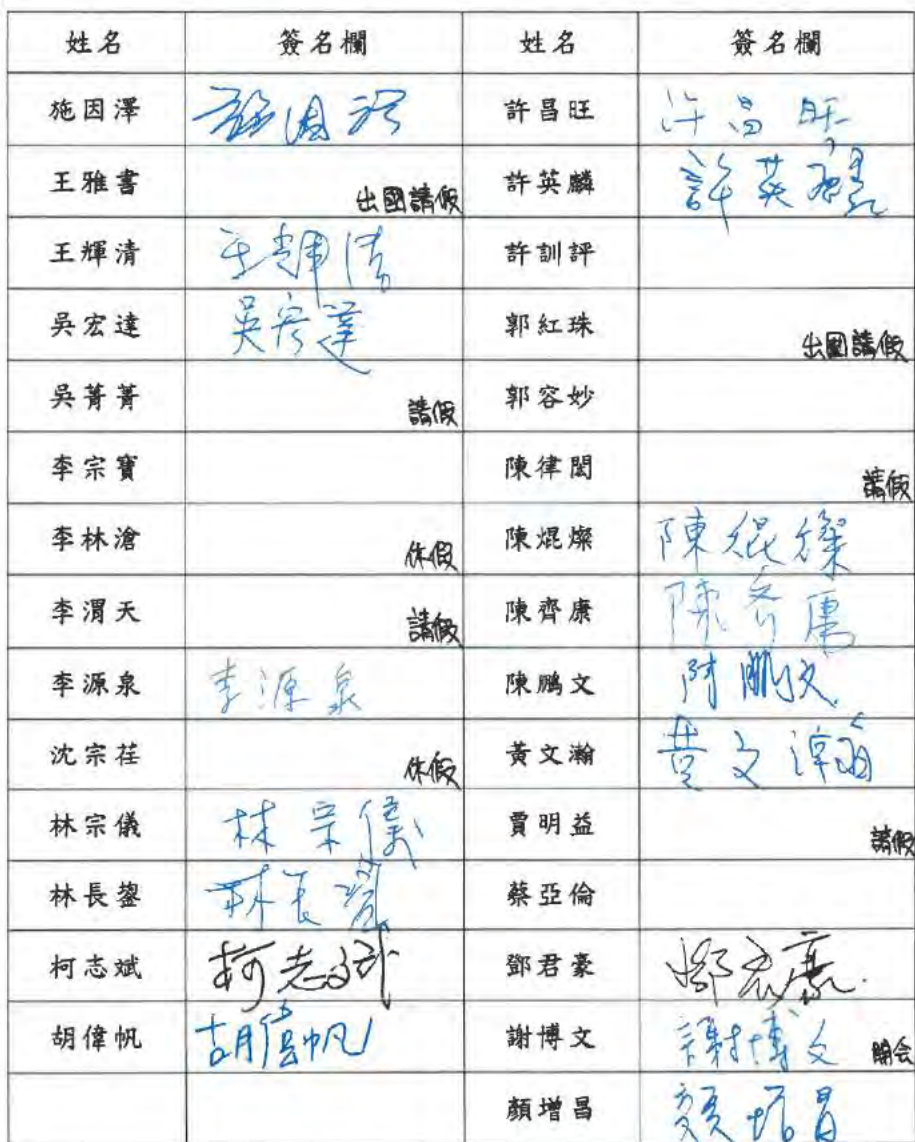 姓名 簽名欄 姓名 簽名欄
施因澤 施因澤 許昌旺 許昌旺
王雅書 出國請假 許英麟 許英麟
王輝清 王輝清 許訓評
吳宏達 吳宏達 郭紅珠 出國請假
吳菁菁 請假 郭容妙
李宗寶 陳律閎 請假
李林滄 休假 陳焜燦 陳焜燦
李渭天 請假 陳齊康 陳齊康
李源泉 李源泉 陳鵬文 陳鵬文
沈宗荏 休假 黃文瀚 黃文瀚
林宗儀 林宗儀 賈明益 請假
林長鋆 林長鋆 蔡亞倫
柯志斌 柯志斌 鄧君豪 鄧君豪
胡偉帆 胡偉帆 謝博文 謝博文
顏增昌 顏增昌